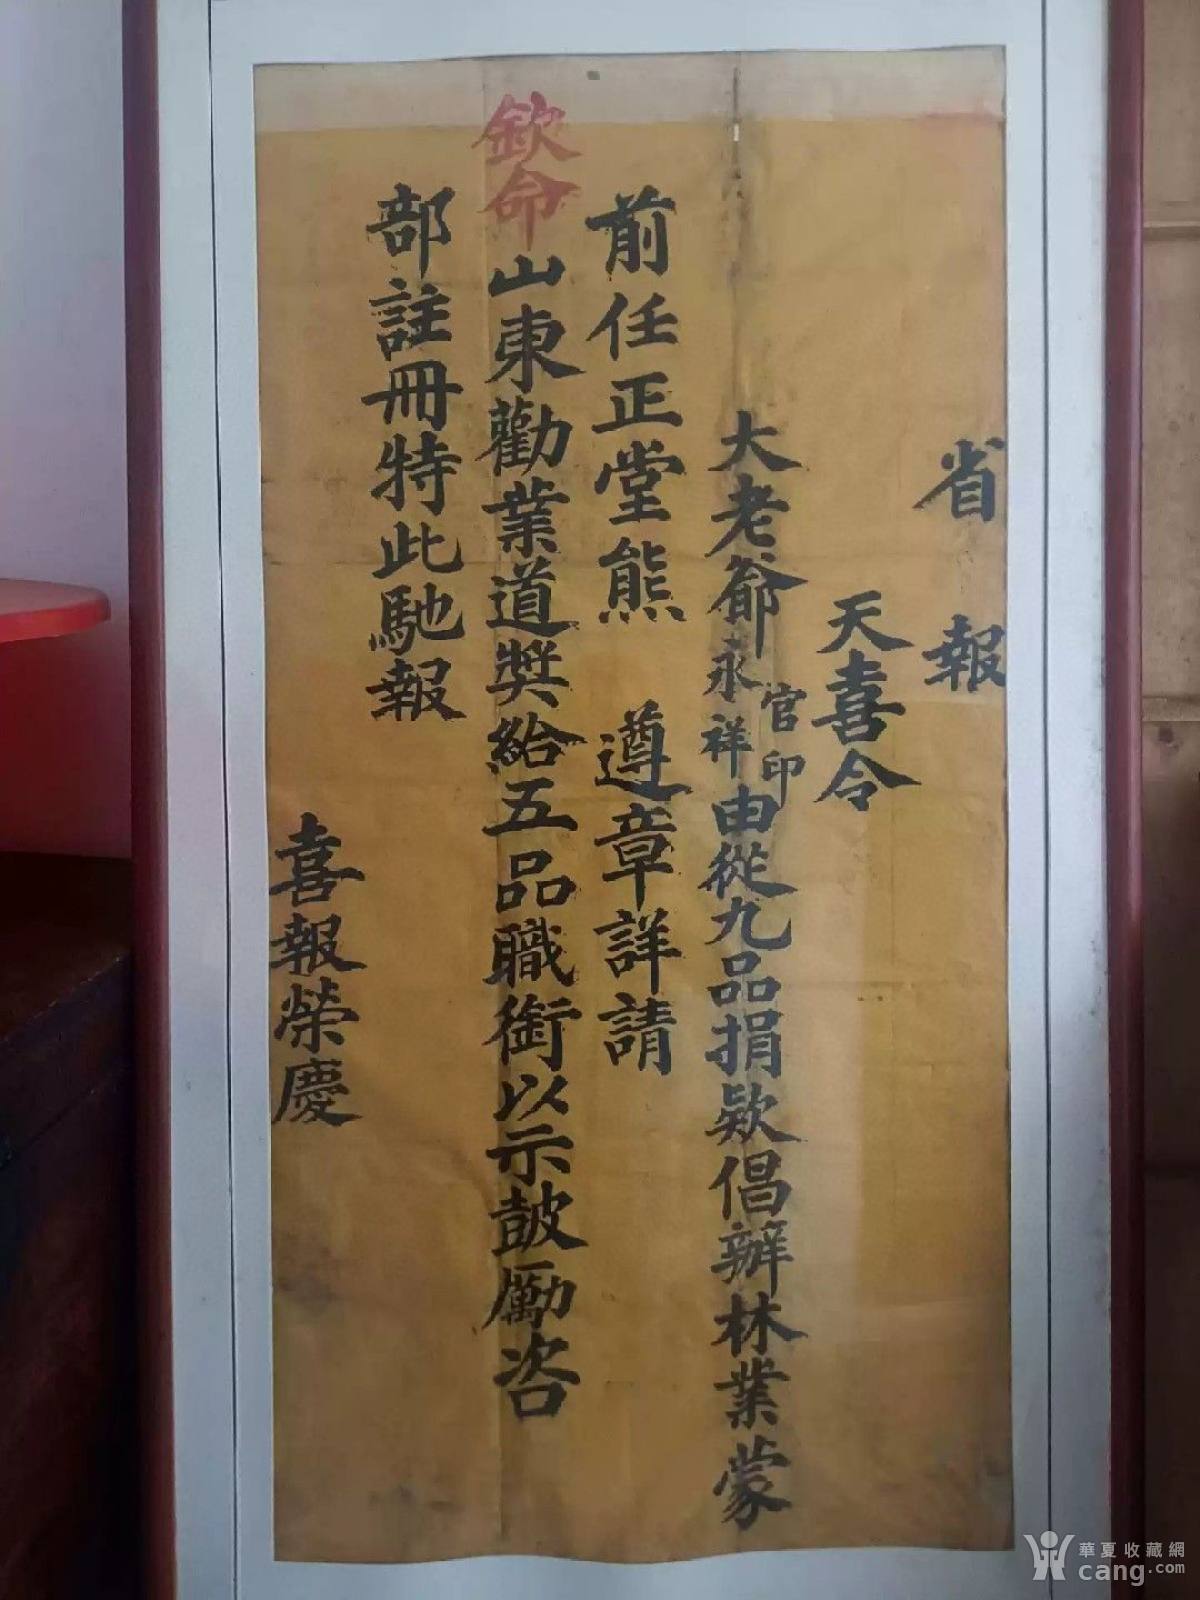 省報
天喜令
大老爺官印永祥由從九品捐欵倡辦林業蒙
前任正堂熊 遵章詳請
欽命山東勸業道奬給五品職銜以示鼓勵咨
部註冊特此馳報
喜報榮慶
華夏收藏網
cang.com